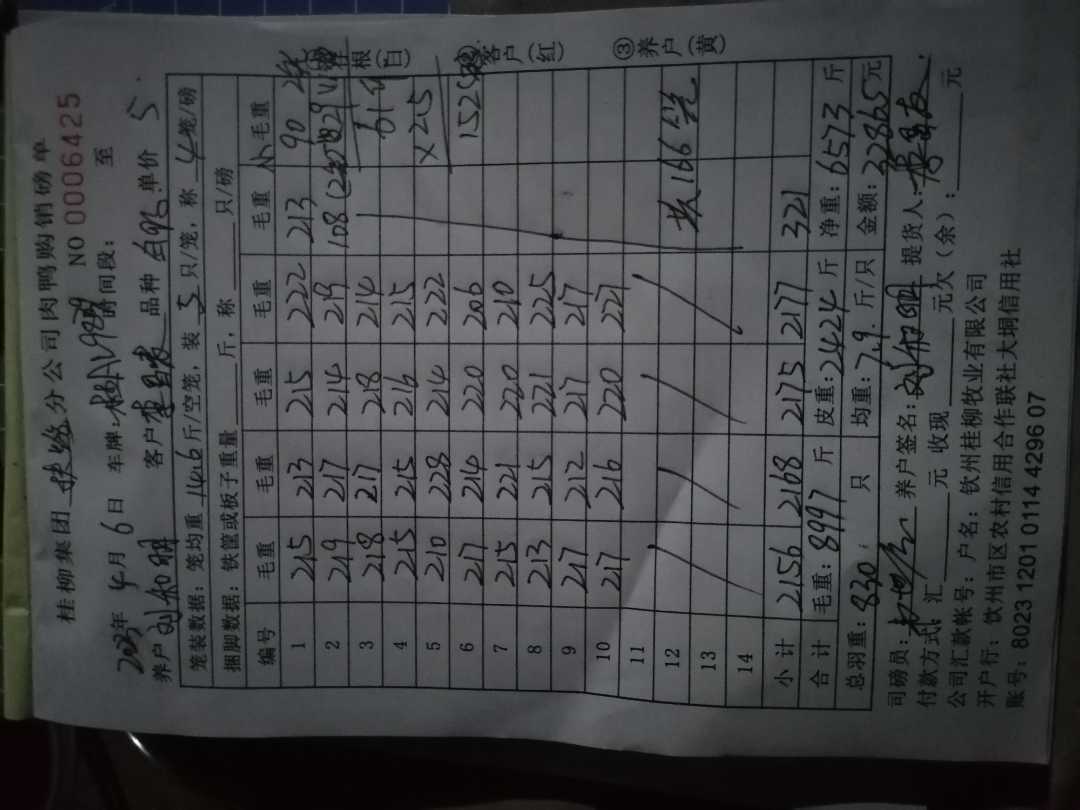 桂柳集团 分公司肉鸭购销磅单
NO 0006425
2023年 4月 6日 车牌: 时间段: 至
养户 刘和明 客户 品种 白鸭 单价 5
笼装数据:笼均重 14.6 斤/空笼,装 5 只/笼,称 4 笼/磅
捆脚数据:铁筐或板子重量 斤,称 只/磅
编号 毛重 毛重 毛重 毛重 毛重 毛重
1 215 213 215 222 213 90
2 219 217 214 219 108
3 218 217 218 214
4 215 215 216 215 × 2.5
5 210 228 214 222
6 217 214 220 206
7 215 221 220 210
8 213 215 221 225
9 217 212 217 217
10 217 216 220 227
11
12 共166笼
13
14
小计 2156 2168 2175 2177 321
合计 毛重:8997 斤 皮重:2424 斤 净重:6573 斤
总羽重:830 只 均重:7.9 斤/只 金额:32865元
司磅员: 养户签名:刘和明 提货人:
付款方式:汇 元 收现 元欠(余): 元
公司汇款帐号:户名:钦州桂柳牧业有限公司
开户行:钦州市区农村信用合作联社大垌信用社
账号:8023 1201 0114 4296 07
根(白) ②客户(红) ③养户(黄)